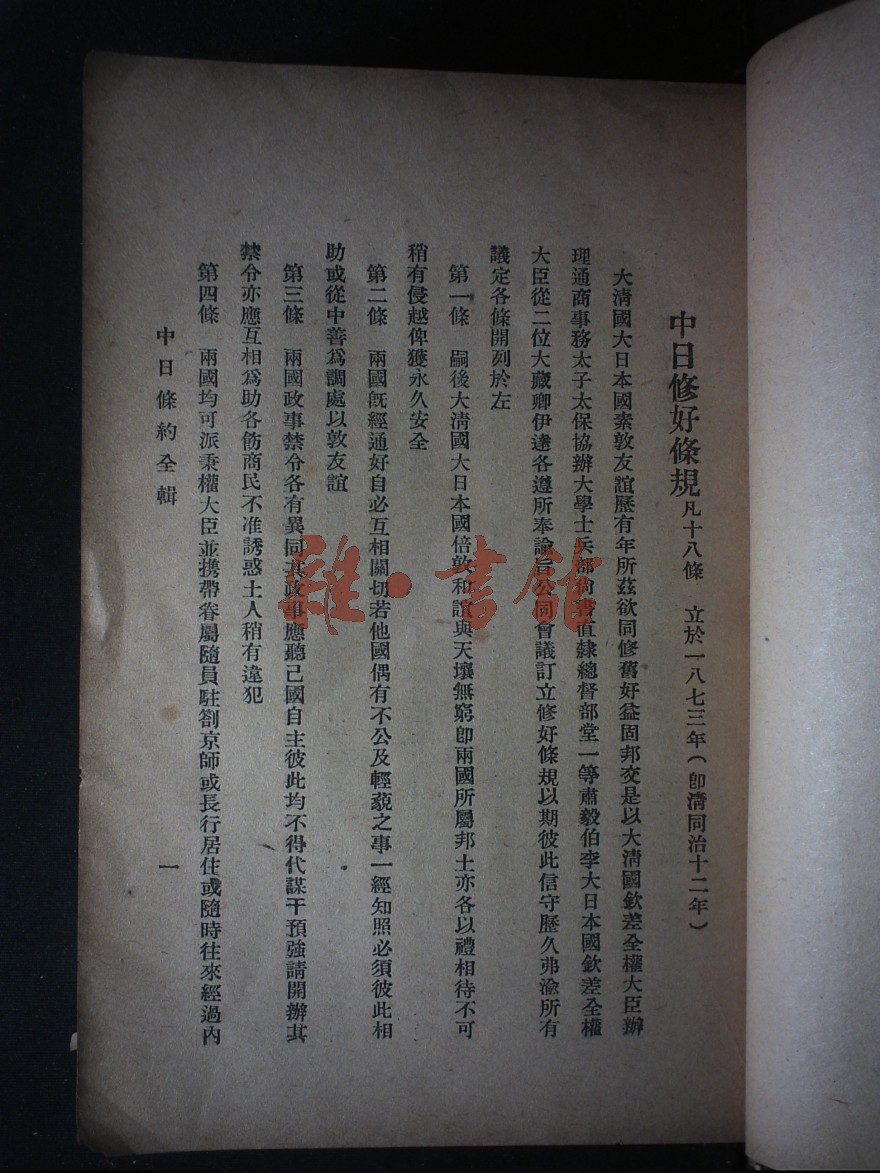 中日修好條規凡十八條 立於一八七三年(卽淸同治十二年)
大淸國大日本國素敦友誼歷有年所茲欲同修舊好益固邦交是以大淸國欽差全權大臣辦
理通商事務太子太保協辦大學士兵部尙書直隸總督部堂一等肅毅伯李大日本國欽差全權
大臣從二位大藏卿伊達各遵所奉諭旨公同會議訂立修好條規以期彼此信守歷久弗渝所有
議定各條開列於左
第一條 嗣後大淸國大日本國倍敦和誼與天壤無窮卽兩國所屬邦土亦各以禮相待不可
稍有侵越俾獲永久安全
第二條 兩國旣經通好自必互相關切若他國偶有不公及輕藐之事一經知照必須彼此相
助或從中善爲調處以敦友誼
第三條 兩國政事禁令各有異同其政事應聽己國自主彼此均不得代謀干預強請開辦其
禁令亦應互相爲助各飭商民不准誘惑土人稍有違犯
第四條 兩國均可派秉權大臣並攜帶眷屬隨員駐劄京師或長行居住或隨時往來經過內
中日條約全輯
一
雜·書館